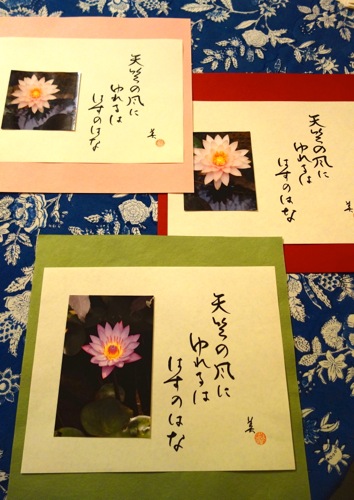 天竺の風に
ゆれるは
はすのはな
美
天竺の風に
ゆれるは
はすのはな
美
天竺の風に
ゆれるは
はすのはな
美